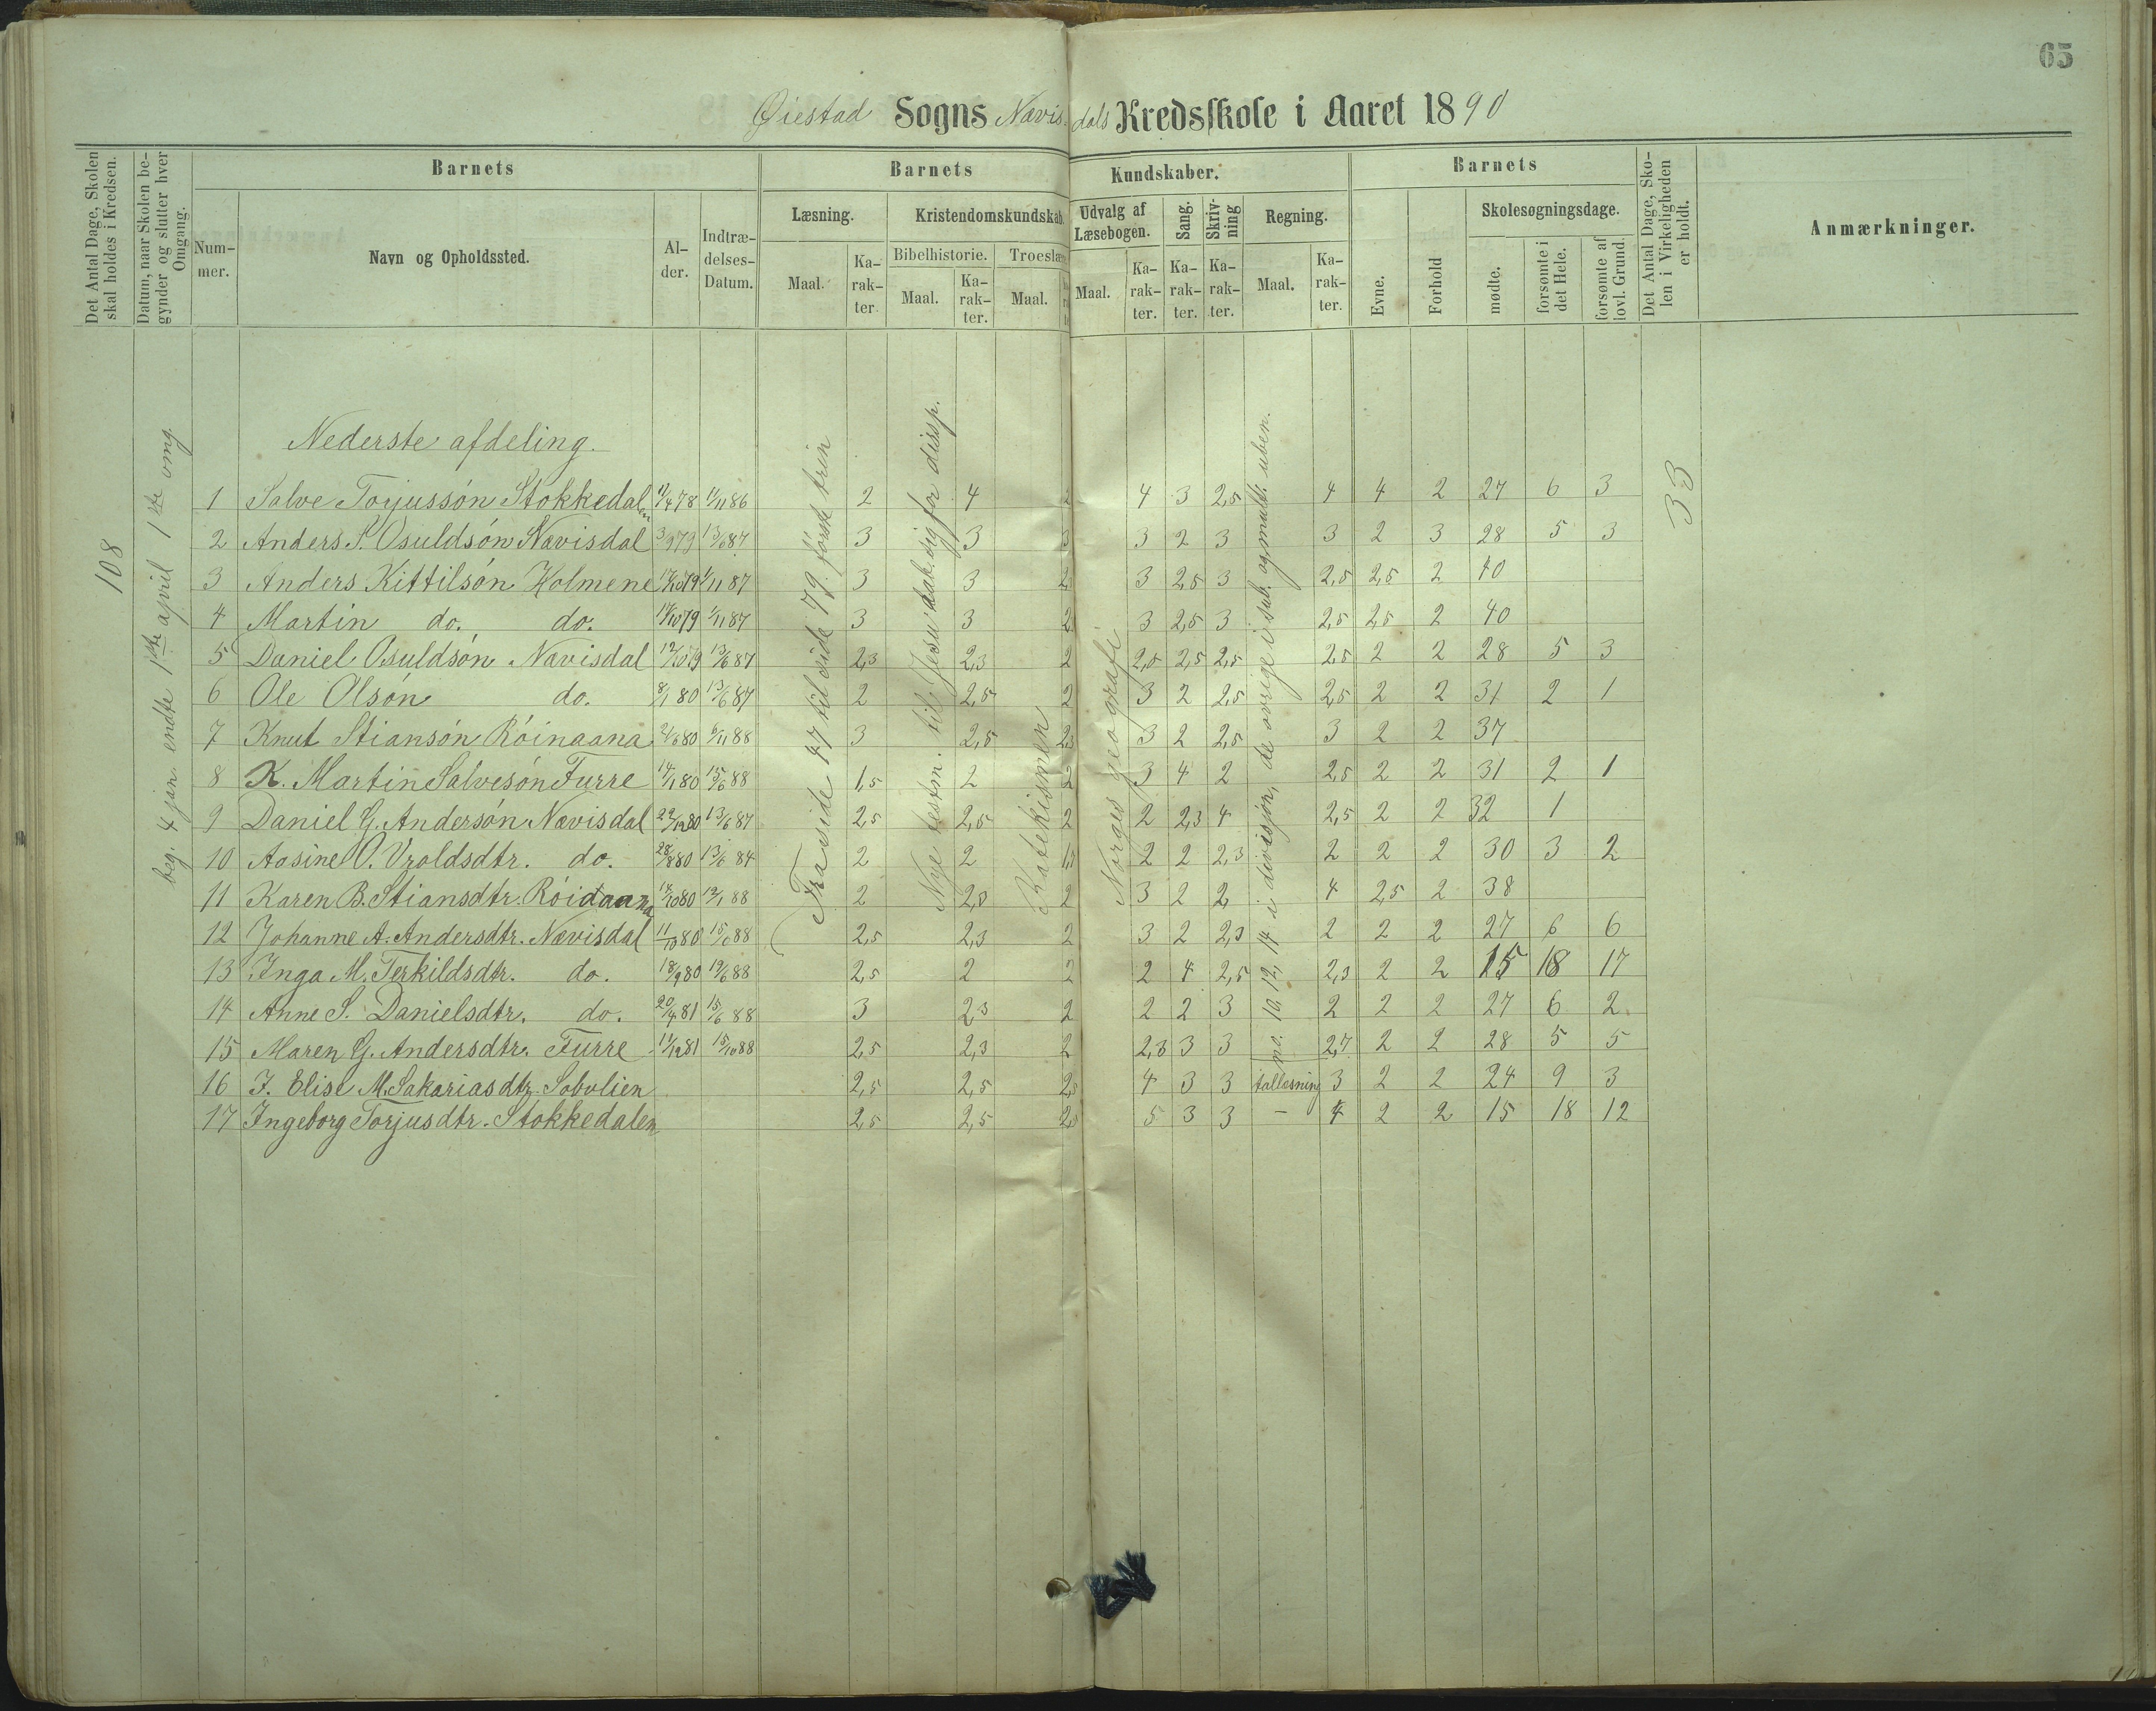 65
Øiestad Sogns Nævis dals Kredsskole i Aaret 1890
Det Antal Dage, Skolen skal holdes i Kredsen.
Datum, naar Skolen begynder og slutter hver Omgang.
Barnets
Barnets Kundskaber.
Barnets
Det Antal Dage, Skolen i Virkeligheden er holdt.
Anmærkninger.
Nummer.
Navn og Opholdssted.
Alder.
Indtrædelses-Datum.
Læsning.
Kristendomskundskab.
Udvalg af Læsebogen.
Sang.
Skrivning
Regning.
Evne.
Forhold
Skolesøgningsdage.
Bibelhistorie.
Troeslære
Maal.
Karakter.
Maal.
Karakter.
Maal.
Maal.
Karakter.
Karakter.
Karakter.
Maal.
Karakter.
mødte.
forsømte i det Hele.
forsømte af lovl. Grund.
108
beg. 4 jan. endte 1ste april 1ste omg.
Nederste afdeling.
Fra side 47 til side 79. første trin
Nye testm. til Jesu bek. sig for dissp.
Katekismen
Norges geografi
no. 10, 12, 14 i divisjon, de øvrige i sub. og mult. uben.
33
1 Salve Torjussón Stokkedalen 11/4 78 1/11 86 2 4 2 4 3 2,5 4 4 2 27 6 3
2 Anders S. Osuldsón Nævisdal 3/9 79 13/6 87 3 3 3 3 2 3 3 2 3 28 5 3
3 Anders Kittilsón Holmene 17/10 79 1/11 87 3 3 3 2,5 3 2,5 2,5 2 40
4 Martin do. do. 17/10 79 1/11 87 3 3 2 3 2,5 3 2,5 2,5 2 40
5 Daniel Osuldsón Nævisdal 12/10 79 13/6 87 2,3 2,3 2 2,5 2,5 2,5 2,5 2 2 28 5 3
6 Ole Olsón do. 8/1 80 13/6 87 2 2,5 2 3 2 2,5 2,5 2 2 31 2 1
7 Knut Stiansón Róinaana 2/6 80 6/11 88 3 2,5 2,3 3 2 2,5 3 2 2 37
8 K. Martin Salvesón Furre 14/1 80 15/6 88 1,5 2 2 3 4 2 2,5 2 2 31 2 1
9 Daniel G. Andersón Nævisdal 22/12 80 13/6 87 2,5 2,5 2 2 2,3 4 2,5 2 2 32 1
10 Aasine O. Vroldsdtr. do. 28/8 80 13/6 84 2 2 1,5 2 2 2,3 2 2 2 30 3 2
11 Karen B. Stiansdtr. Róidaana 14/10 80 12/1 88 2 2,3 2 3 2 2 4 2,5 2 38
12 Johanne A. Andersdtr. Nævisdal 11/10 80 15/6 88 2,5 2,3 2 3 2 2,3 2 2 2 27 6 6
13 Inga M. Terkildsdtr. do. 18/9 80 19/6 88 2,5 2 2 2 4 2,5 2,3 2 2 15 18 17
14 Anne S. Danielsdtr. do. 20/4 81 15/6 88 3 2,3 2 2 2 3 2 2 2 27 6 2
15 Maren G. Andersdtr. Furre 11/12 81 15/10 88 2,5 2,3 2 2,3 3 3 2,7 2 2 28 5 5
16 J. Elise M. Sakariasdtr. Sobolien 2,5 2,5 2,5 4 3 3 tallæsning 3 2 2 24 9 3
17 Ingeborg Torjusdtr. Stokkedalen 2,5 2,5 2,5 5 3 3 – 4 2 2 15 18 12